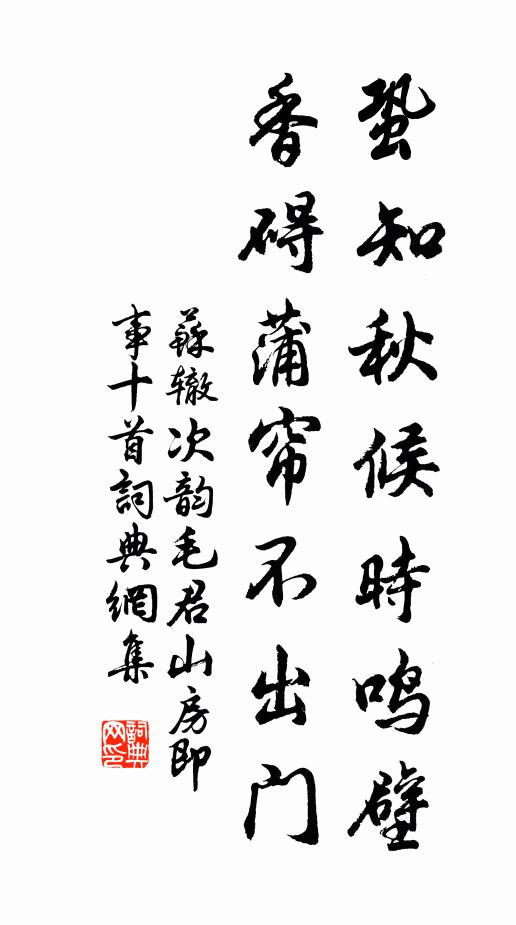 蛩知秋候時鸣壁
香碍蒲帘不出门
蘇辙次韵毛君山房即
事十首詞典網集
詞典
网印